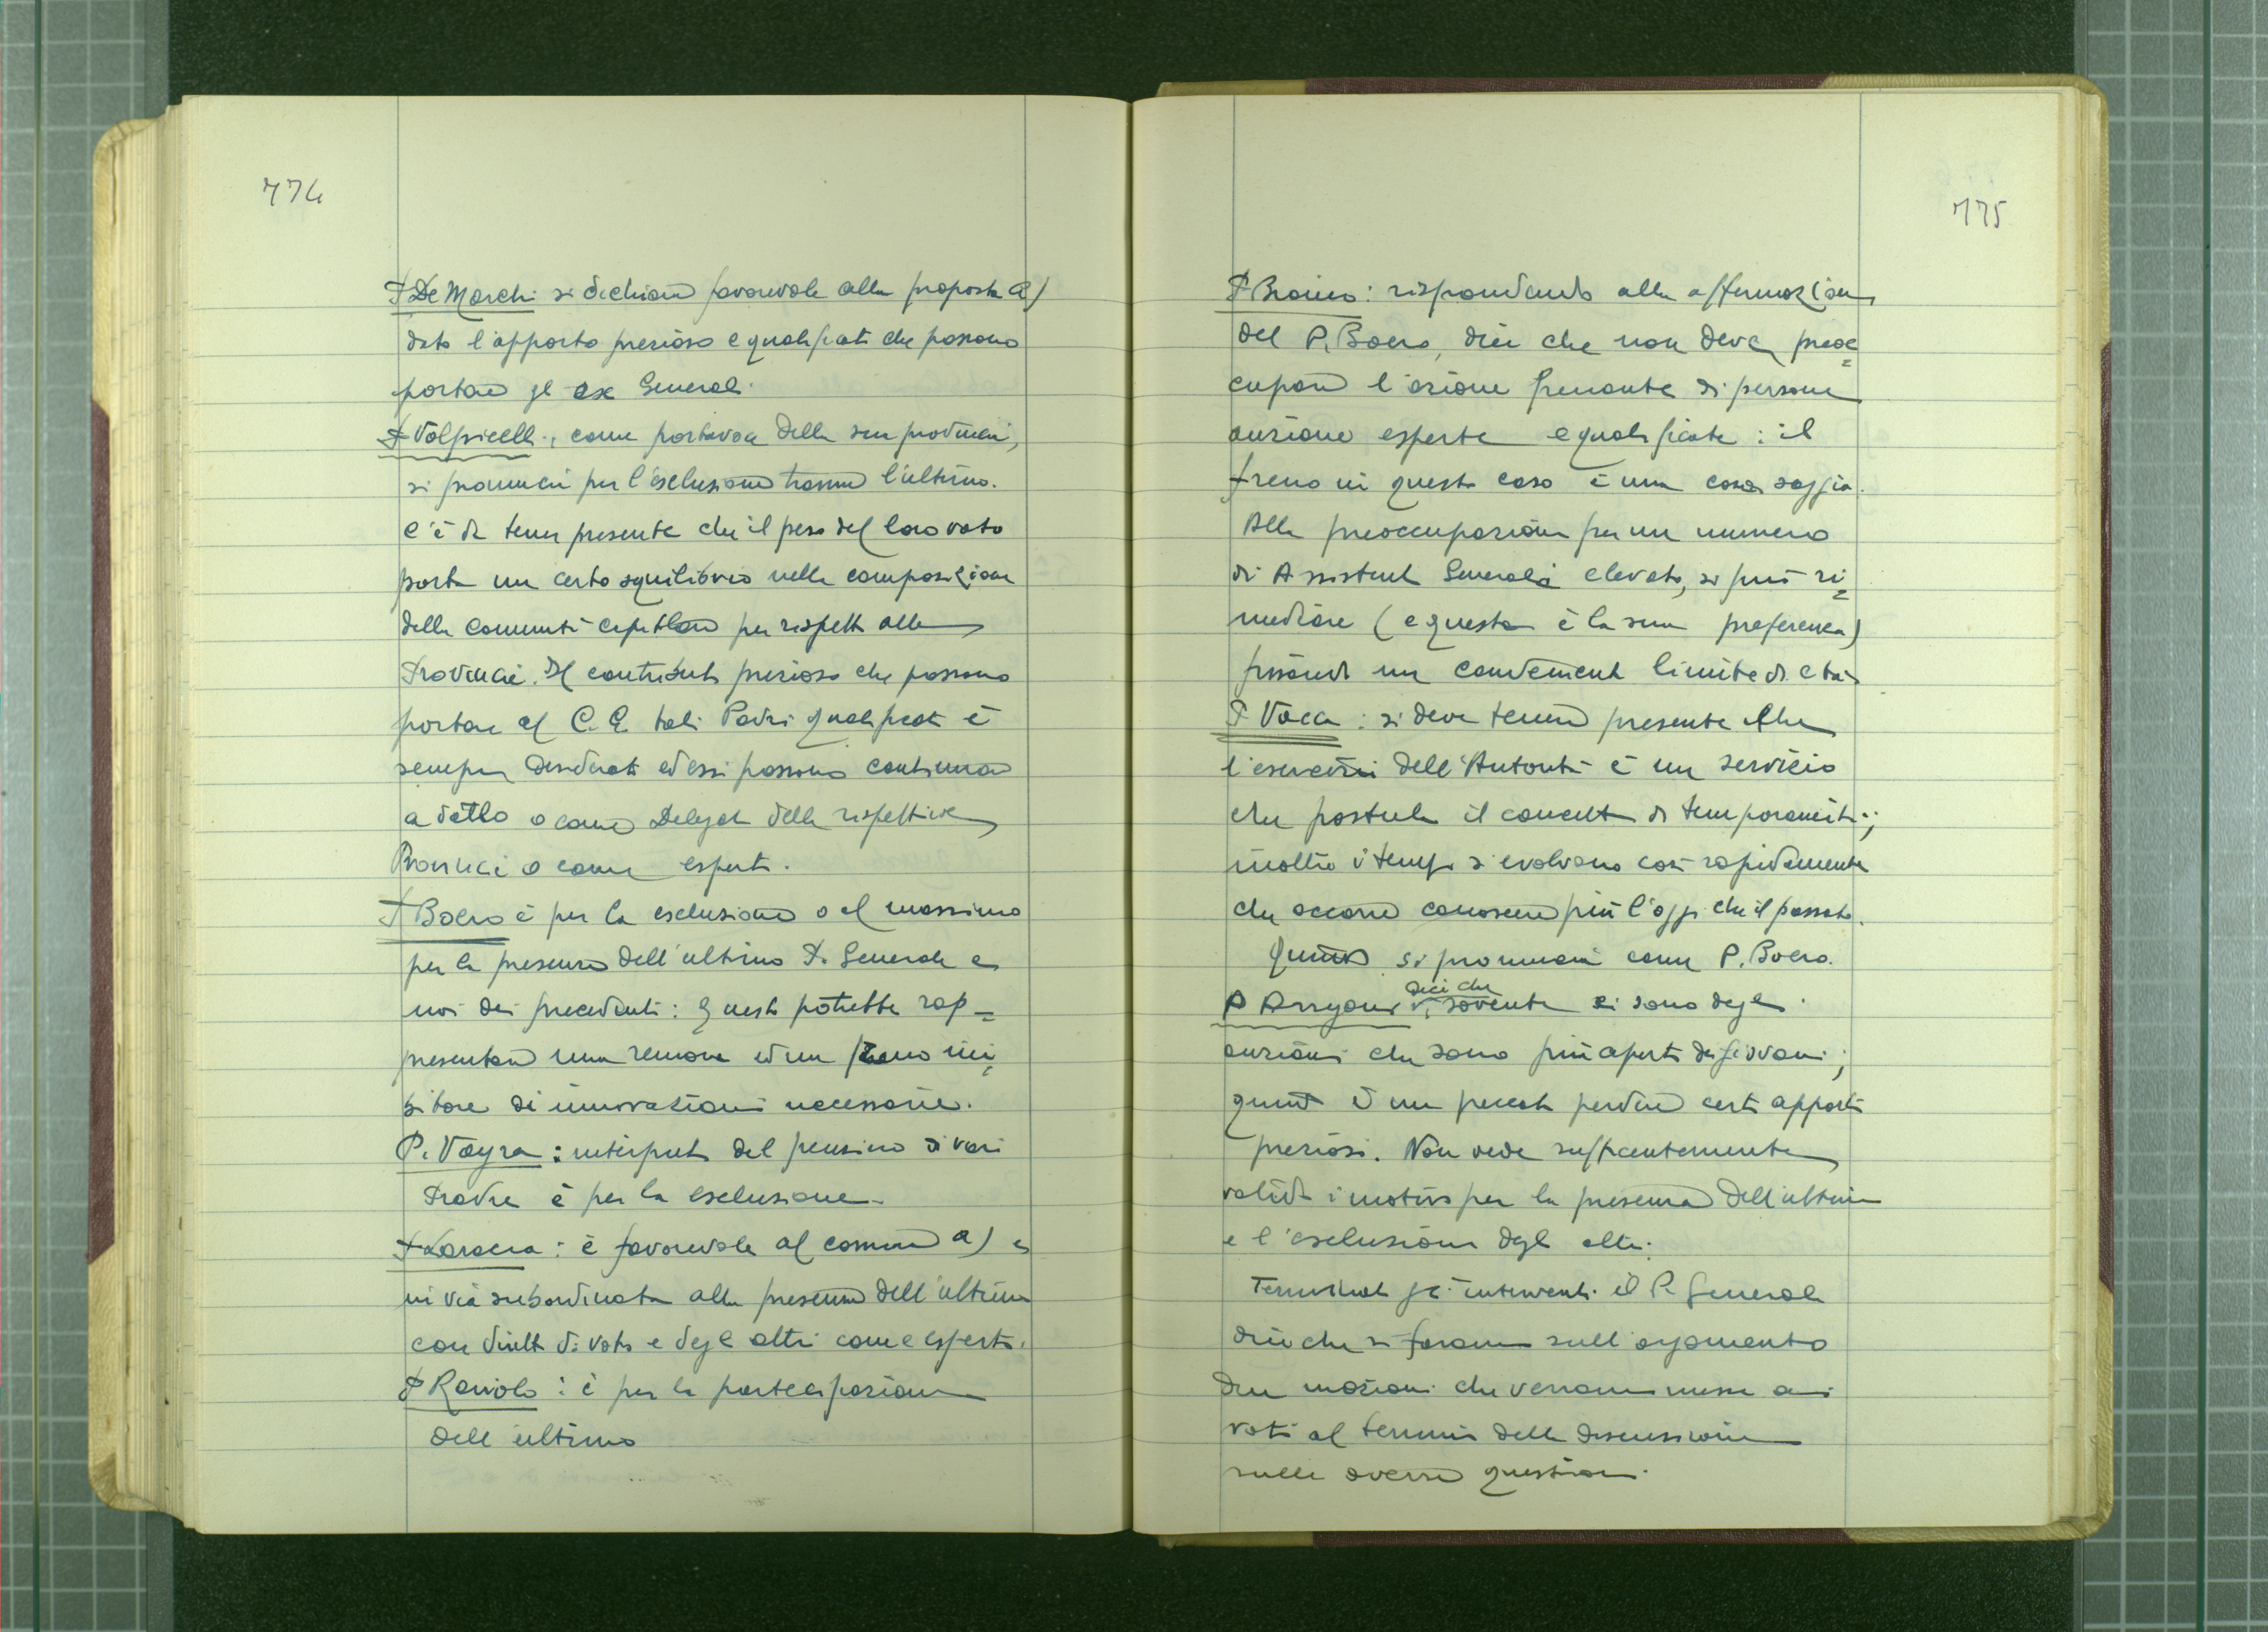 774
P. De Marchi si dichiara favorevole alla proposta a)
dato l'apporto prezioso e qualificato che possono
portare gli ex Generali.
P. Volpicelli, come portavoce della sua provincia,
si pronuncia per l'esclusione tranne l'ultimo.
C'è da tener presente che il peso del loro voto
porta un certo squilibrio nella composizione
della comunità capitolare per rispetto alle
Provincie. Il contributo prezioso che possono
portare al C. G. tali Padri qualificati è
sempre desiderato ed essi possono continuare
a darlo o come Delegati delle rispettive
Provincie o come esperti.
P. Boero è per la esclusione o al massimo
per la presenza dell'ultimo P. Generale e
non dei precedenti: questo potrebbe rap=
presentare una remora ed un freno ini=
bitore di innovazioni necessarie.
P. Vayra: interprete del pensiero di vari
Padri è per la esclusione.
P. Laracca: è favorevole al comma a) e
in via subordinata alla presenza dell'ultimo
con diritto di voto e degli altri come esperti.
P. Raviolo: è per la partecipazione
dell'ultimo
775
P. Braino: rispondendo alla affermazione
del P. Boero, dice che non deve preoc=
cupare l'azione frenante di persone
anziane esperte e qualificate: il
freno in questo caso è una cosa saggia.
Alla preoccupazione per un numero
di Assistenti Generali elevato, si può ri=
mediare (e questa è la sua preferenza)
fissando un conveniente limite di età
P. Vacca: si deve tenere presente che
l'esercizio dell'Autorità è un servizio
che postula il concetto di temporaneità;
inoltre i tempi si evolvono così rapidamente
che occorre conoscere più l'oggi che il passato.
Quindi si pronuncia come P. Boero.
P. Arrigoni dice che sovente ci sono degli
anziani che sono più aperti dei giovani;
quindi è un peccato perdere certi apporti
preziosi. Non vede sufficientemente
validi i motivi per la presenza dell'ultimo
e l'esclusione degli altri.
Terminati gli interventi il P. Generale
dice che si faranno sull'argomento
due mozioni che verranno messe ai
voti al termine della discussione
sulle diverse questioni.